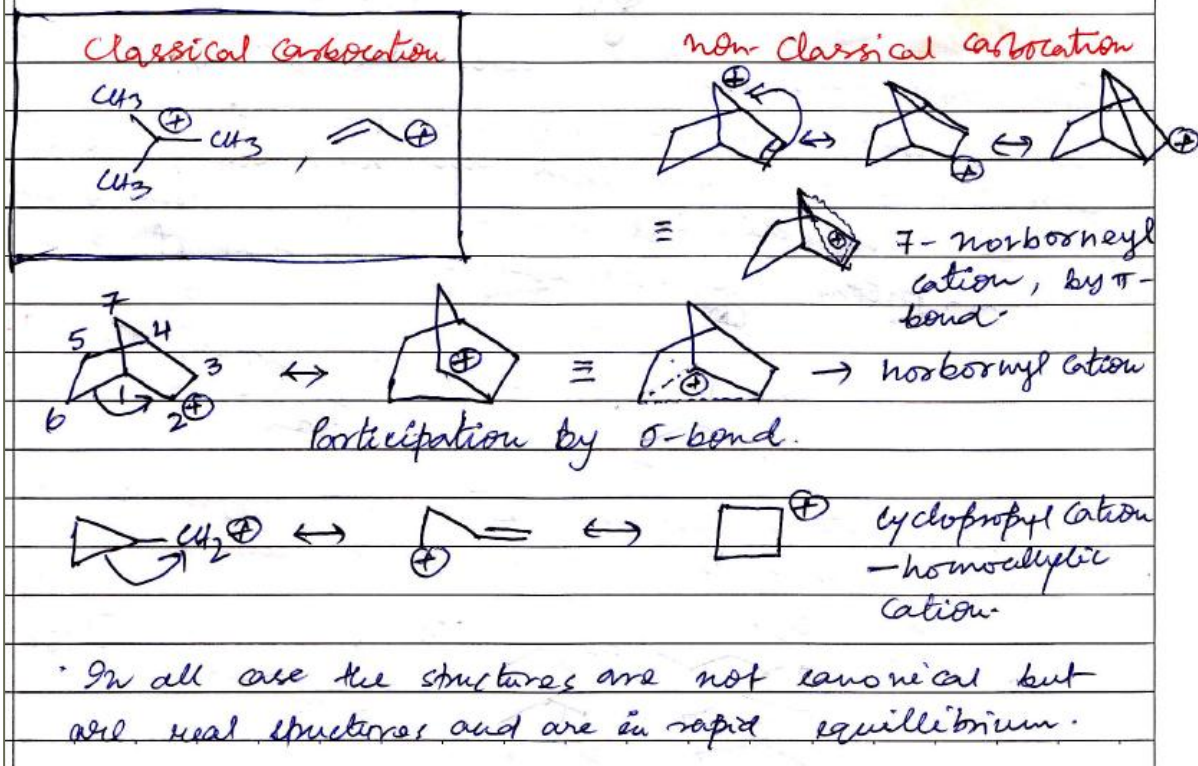 Classical carbocation
non Classical carbocation
CH3
⊕
CH3
CH3
,
⊕
⊕
↔
⊕
↔
⊕
≡
⊕
7-norborneyl
cation, by π-
bond.
7
5
4
3
6
1
2⊕
↔
⊕
≡
⊕
→ norbornyl cation
Participation by σ-bond.
CH2⊕
↔
⊕
↔
⊕
cyclopropyl cation
-homoallylic
cation.
· In all case the structures are not canonical but
are real structures and are in rapid equillibrium.